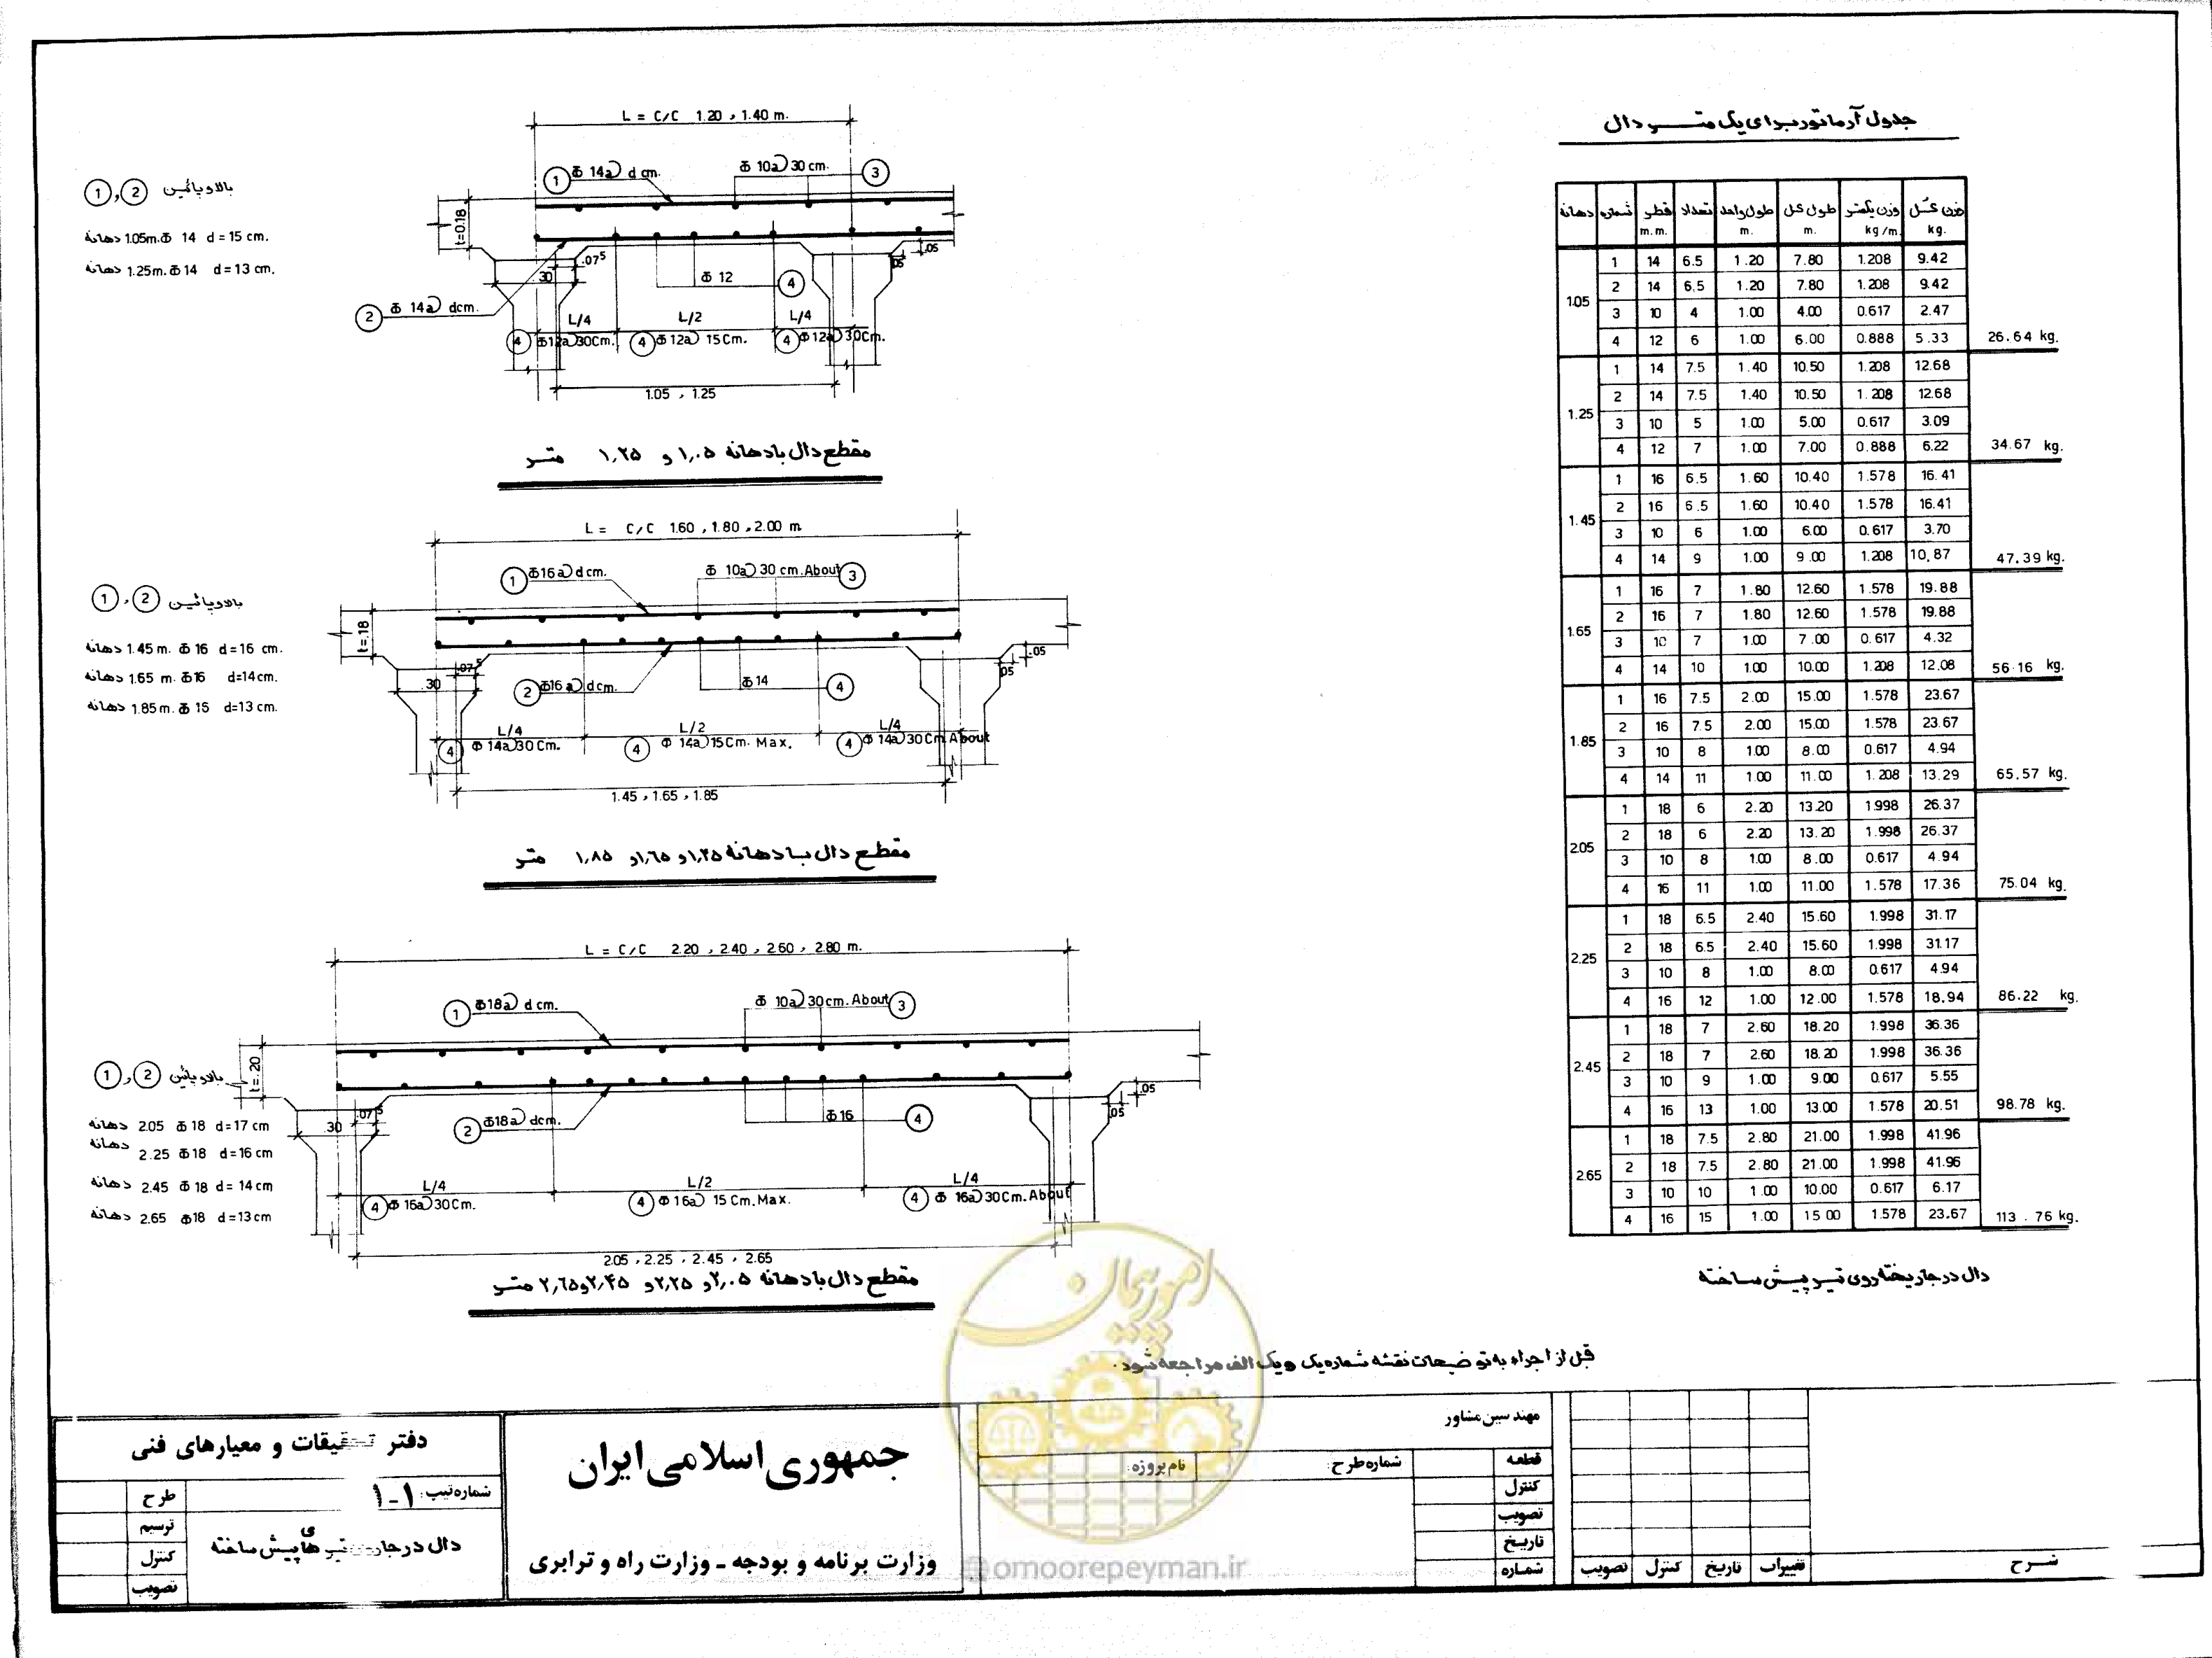 L = C/C 1.20 , 1.40 m.
1 Φ 14a d cm.
Φ 10a 30 cm. 3
1 , 2 بالا و پائین
دهانه 1.05m. Φ 14 d = 15 cm.
دهانه 1.25m. Φ 14 d = 13 cm.
t=0.18
.05
.05
.07⁵
.30
Φ 12 4
2 Φ 14a dcm.
L/4 L/2 L/4
4 Φ12a 30Cm. 4 Φ 12a 15Cm. 4 Φ12a 30Cm.
1.05 , 1.25
مقطع دال با دهانه ۱٫۰۵ و ۱٫۲۵ متر
L = C/C 1.60 , 1.80 , 2.00 m
1 Φ16a d cm.
Φ 10a 30 cm. About 3
1 , 2 بالا و پائین
دهانه 1.45 m. Φ 16 d=16 cm.
دهانه 1.65 m. Φ16 d=14cm.
دهانه 1.85m. Φ 15 d=13 cm.
t=.18
.05
.05
.07⁵
.30
2 Φ16a dcm.
Φ14 4
L/4 L/2 L/4
4 Φ 14a 30 Cm. 4 Φ 14a 15Cm. Max. 4 Φ 14a 30 Cm About
1.45 , 1.65 , 1.85
مقطع دال با دهانه ۱٫۴۵ و ۱٫۶۵ و ۱٫۸۵ متر
L = C/C 2.20 , 2.40 , 2.60 , 2.80 m.
1 Φ18a d cm.
Φ 10a 30 cm. About 3
1 , 2 بالا و پائین
دهانه 2.05 Φ 18 d=17 cm
دهانه 2.25 Φ18 d=16 cm
دهانه 2.45 Φ 18 d= 14 cm
دهانه 2.65 Φ18 d=13cm
t=.20
.05
.05
.07⁵
.30
2 Φ18a dcm.
Φ16 4
L/4 L/2 L/4
4 Φ 16a 30Cm. 4 Φ 16a 15 Cm. Max. 4 Φ 16a 30Cm. About
2.05 , 2.25 , 2.45 , 2.65
مقطع دال با دهانه ۲٫۰۵ و ۲٫۲۵ و ۲٫۴۵ و ۲٫۶۵ متر
جدول آرماتور برای یک متر دال
دهانه شماره قطر تعداد طول واحد طول کل وزن یکمتر وزن کل
m.m. m. m. kg/m. kg.
1.05
1 14 6.5 1.20 7.80 1.208 9.42
2 14 6.5 1.20 7.80 1.208 9.42
3 10 4 1.00 4.00 0.617 2.47
4 12 6 1.00 6.00 0.888 5.33 26.64 kg.
1.25
1 14 7.5 1.40 10.50 1.208 12.68
2 14 7.5 1.40 10.50 1.208 12.68
3 10 5 1.00 5.00 0.617 3.09
4 12 7 1.00 7.00 0.888 6.22 34.67 kg.
1.45
1 16 6.5 1.60 10.40 1.578 16.41
2 16 6.5 1.60 10.40 1.578 16.41
3 10 6 1.00 6.00 0.617 3.70
4 14 9 1.00 9.00 1.208 10.87 47.39 kg.
1.65
1 16 7 1.80 12.60 1.578 19.88
2 16 7 1.80 12.60 1.578 19.88
3 10 7 1.00 7.00 0.617 4.32
4 14 10 1.00 10.00 1.208 12.08 56.16 kg.
1.85
1 16 7.5 2.00 15.00 1.578 23.67
2 16 7.5 2.00 15.00 1.578 23.67
3 10 8 1.00 8.00 0.617 4.94
4 14 11 1.00 11.00 1.208 13.29 65.57 kg.
2.05
1 18 6 2.20 13.20 1.998 26.37
2 18 6 2.20 13.20 1.998 26.37
3 10 8 1.00 8.00 0.617 4.94
4 16 11 1.00 11.00 1.578 17.36 75.04 kg.
2.25
1 18 6.5 2.40 15.60 1.998 31.17
2 18 6.5 2.40 15.60 1.998 31.17
3 10 8 1.00 8.00 0.617 4.94
4 16 12 1.00 12.00 1.578 18.94 86.22 kg.
2.45
1 18 7 2.60 18.20 1.998 36.36
2 18 7 2.60 18.20 1.998 36.36
3 10 9 1.00 9.00 0.617 5.55
4 16 13 1.00 13.00 1.578 20.51 98.78 kg.
2.65
1 18 7.5 2.80 21.00 1.998 41.96
2 18 7.5 2.80 21.00 1.998 41.96
3 10 10 1.00 10.00 0.617 6.17
4 16 15 1.00 15 00 1.578 23.67 113.76 kg.
دال درجا ریخته روی تیر پیش ساخته
قبل از اجراء به توضیحات نقشه شماره یک و یک الف مراجعه شود.
امور پیمان
omoorepeyman.ir
مهندسین مشاور
قطعه
شماره طرح:
نام پروژه:
کنترل
تصویب
تاریخ
شماره
شرح
تغییرات تاریخ کنترل تصویب
جمهوری اسلامی ایران
وزارت برنامه و بودجه ـ وزارت راه و ترابری
دفتر تحقیقات و معیارهای فنی
شماره تیپ: ۱-۱
طرح
ترسیم
کنترل
تصویب
دال درجا تیرهای پیش ساخته